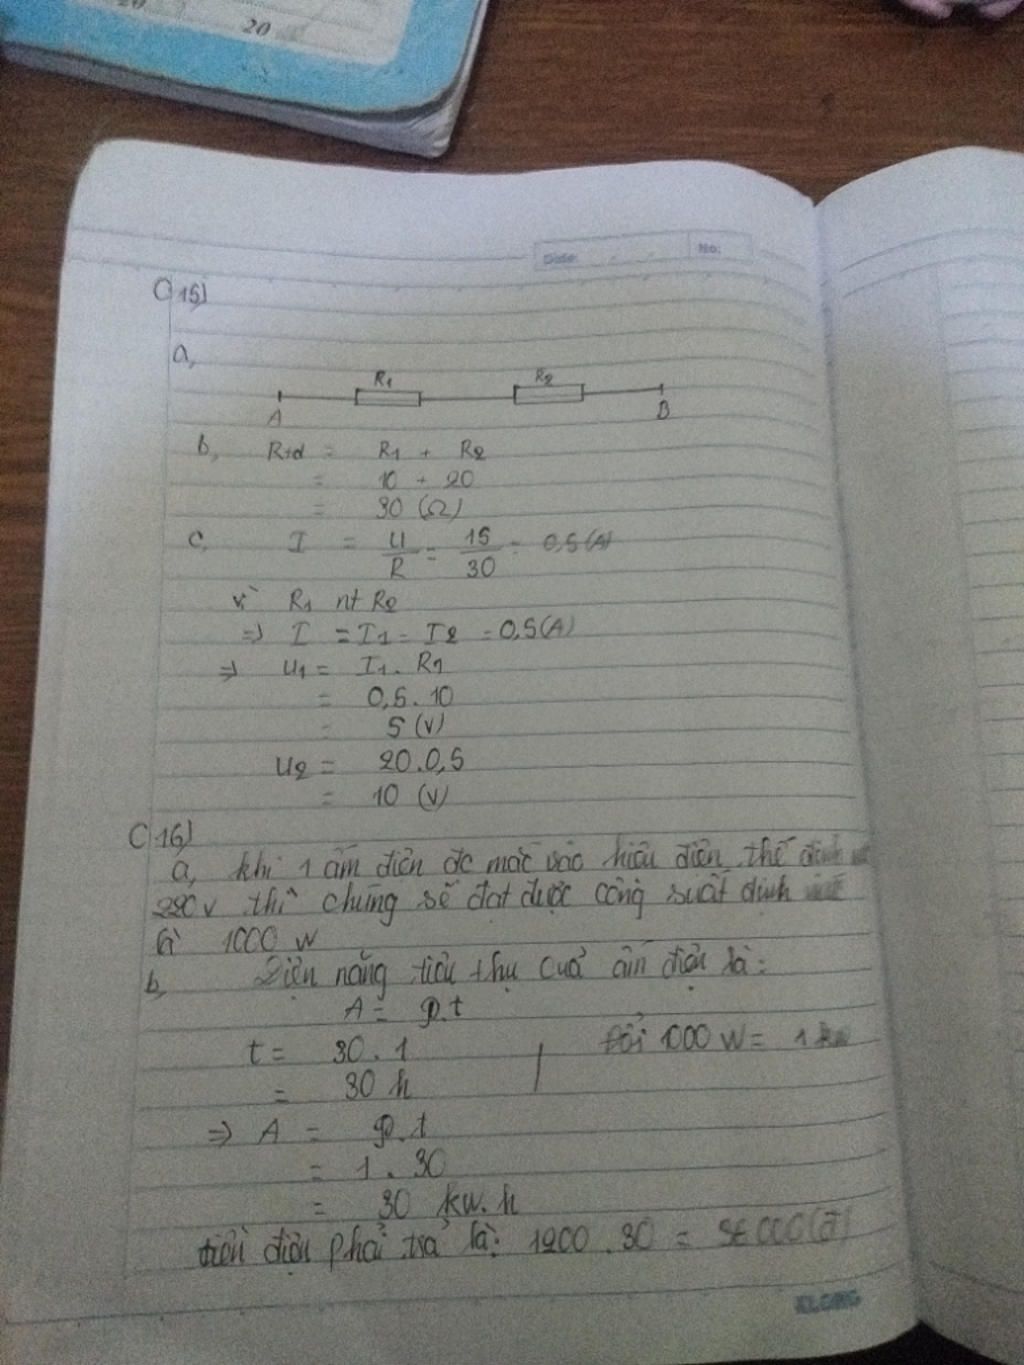 20
20
Date:
No:
C15)
a,
R1
R2
A
B
b, Rtd = R1 + R2
= 10 + 20
= 30 (Ω)
c, I = U/R = 15/30 = 0,5 (A)
vì R1 nt R2
=> I = I1 = I2 = 0,5 (A)
=> U1 = I1. R1
= 0,5. 10
= 5 (V)
U2 = 20.0,5
= 10 (V)
C16)
a, khi 1 ấm điện đc mắc vào hiệu điện thế định
220V thì chúng sẽ đạt được công suất định
là 1000 W
b, Điện năng tiêu thụ của ấm điện là:
A = P.t
t = 30. 1
= 30 h
Đổi 1000 W = 1 kw
=> A = P.t
= 1. 30
= 30 kw.h
tiền điện phải trả là: 1200. 30 = 36000 (đ)
KLONG